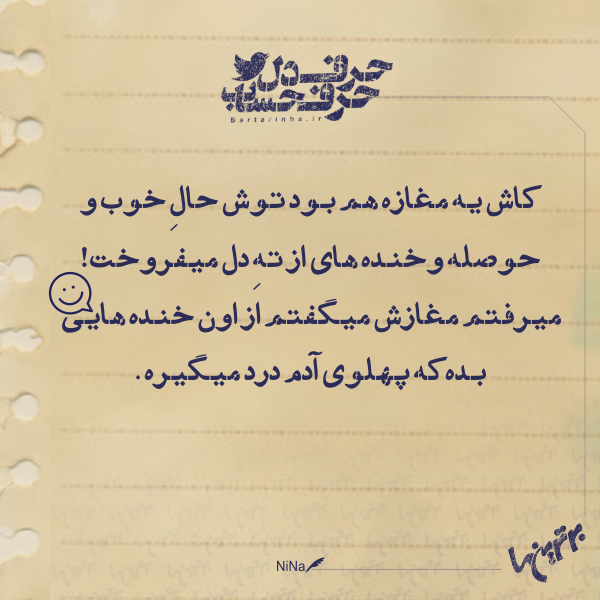 حرف دل
حرف حساب
Bartarinha.ir
کاش یه مغازه هم بود توش حالِ خوب و
حوصله و خنده های از تهِ دل میفروخت!
میرفتم مغازش میگفتم از اون خنده هایی
بده که پهلوی آدم درد میگیره.
NiNa
برترین ها